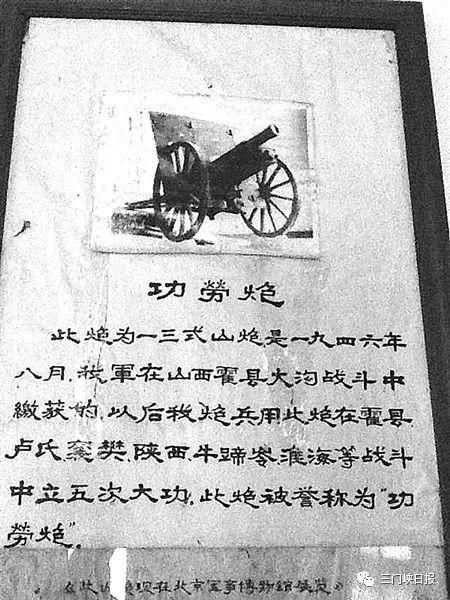 功勞炮
此炮为一三式山炮是一九四六年
八月.我軍在山西霍县大沟战斗中
繳获的.以后我炮兵用此炮在霍县
卢氏.窯樊.陕西.牛蹄岺.淮海等战斗
中立五次大功.此炮被誉称为“功
勞炮”.
《此山炮现在北京军事博物館展览》
三门峡日报